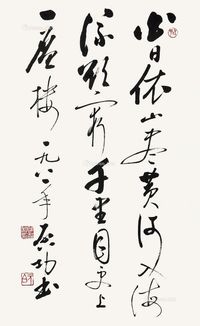 白日依山盡黄河入海
流欲窮千里目更上
一層樓 一九八一年 启功書